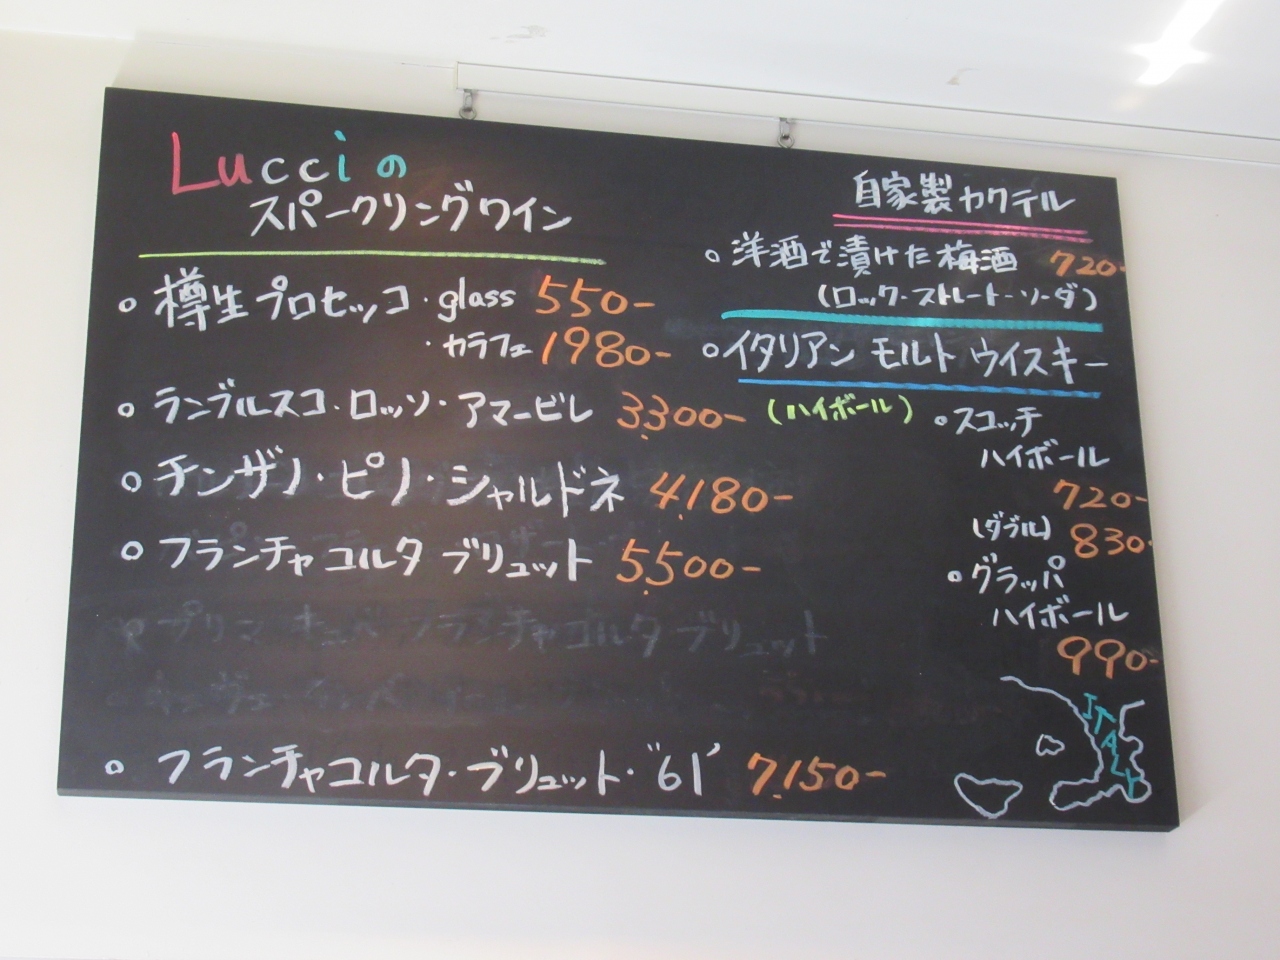 Lucciの
スパークリングワイン
○ 樽生プロセッコ・glass 550-
・カラフェ 1980-
○ ランブルスコ・ロッソ・アマービレ 3,300-
○ チンザノ・ピノ・シャルドネ 4,180-
○ フランチャコルタ ブリュット 5,500-
プリマ キュベ フランチャコルタ ブリュット
○ フランチャコルタ・ブリュット・"61' 7,150-
自家製カクテル
○ 洋酒で漬けた梅酒 720-
(ロック・ストレート・ソーダ)
○ イタリアン モルト ウイスキー
(ハイボール)
○ スコッチ
ハイボール
720-
(ダブル) 830-
○ グラッパ
ハイボール
990-
ITALY